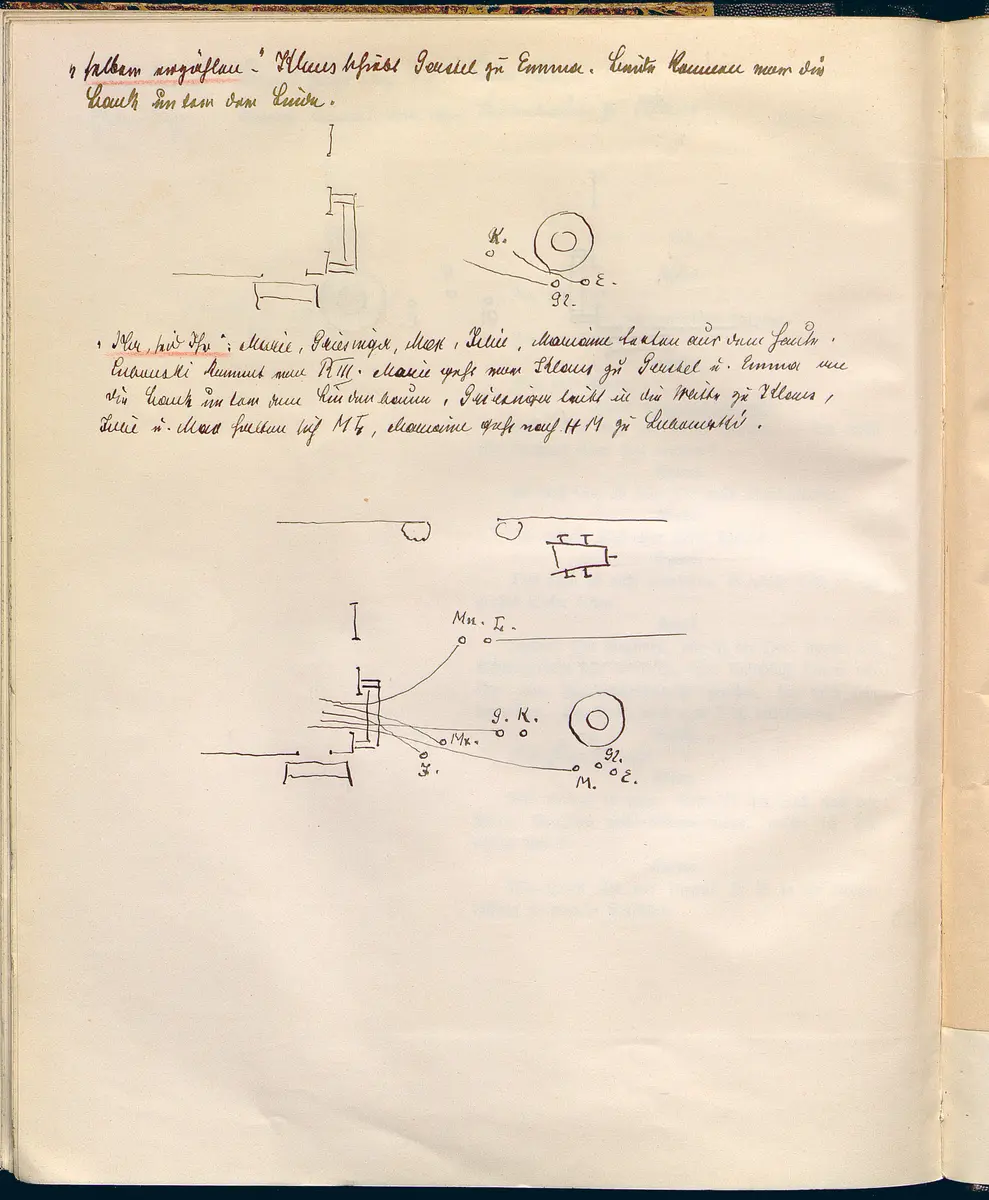 „selbem erzählen“ Klaus schiebt Gretel zu Emma. Beide kommen vor die
Bank unter der Linde.
K.
E.
Gr.
„Nu, seid Ihr“: Marie, Griesinger, Max, Julie, Marianne treten aus dem Hause.
Lubowski kommt von R III. Marie geht vor Klaus zu Gretel u. Emma an
die Bank unter dem Lindenbaum, Griesinger tritt in die Mitte zu Klaus,
Julie u. Max halten sich M L, Marianne geht nach H M zu Lubowski.
Mn. L.
G. K.
Mx.
J.
Gr.
M. E.